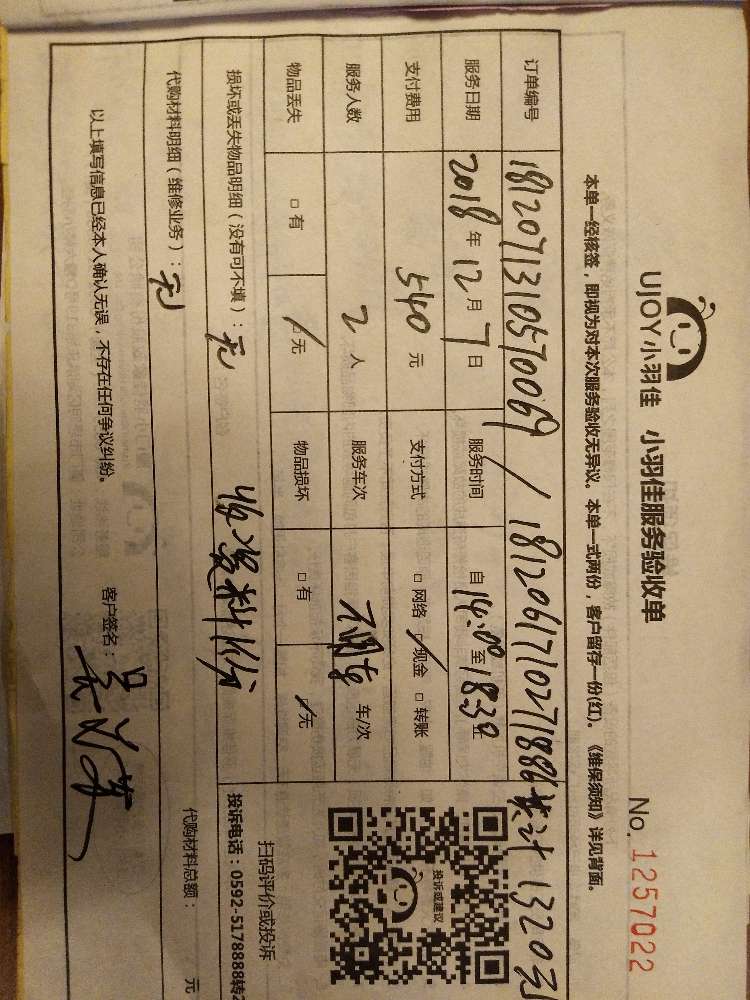 UJOY小羽佳 小羽佳服务验收单
No. 1257022
本单一经核签，即视为对本次服务验收无异议。本单一式两份，客户留存一份(红)。《维保须知》详见背面。
订单编号 1812071310570069 / 181206171027188 共计 1320元
服务日期 2018 年 12 月 7 日 服务时间 自 14:00 至 18:30
支付费用 540 元 支付方式 □ 网络 ☑ 现金 □ 转账
服务人数 2 人 服务车次 不用车 车/次
物品丢失 □ 有 ☑ 无 物品损坏 □ 有 ☑ 无
损坏或丢失物品明细（没有可不填）：无
代购材料明细（维修业务）：无
代购材料总额： 元
以上填写信息已经本人确认无误，不存在任何争议纠纷。 客户签名：
投诉或建议
扫码评价或投诉
投诉电话：0592-5178888转2